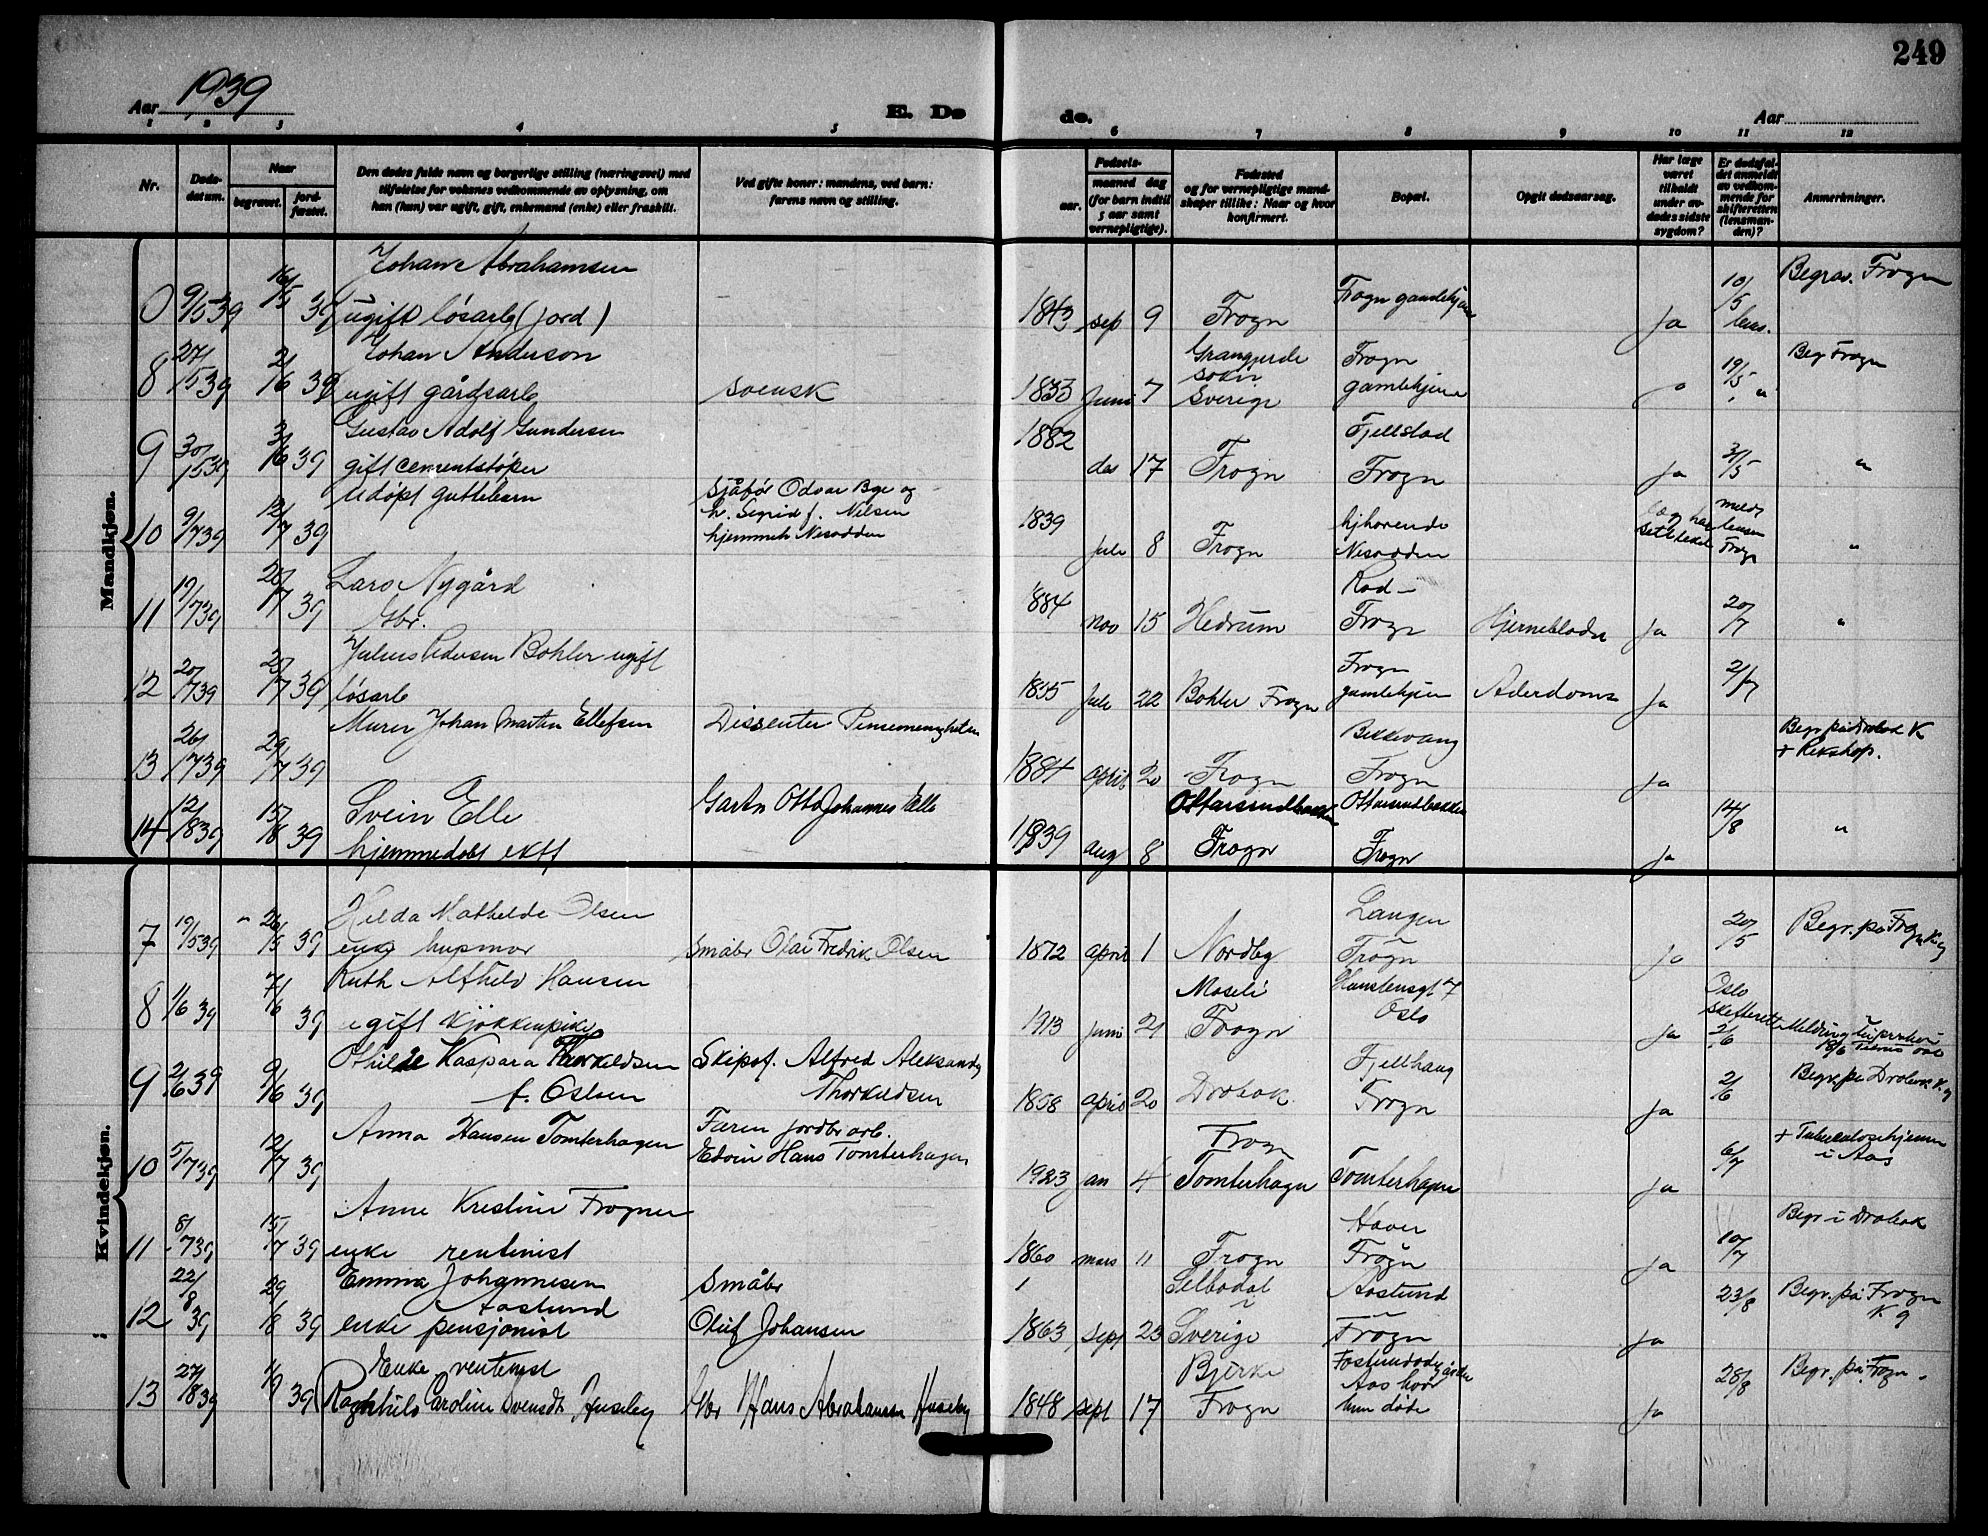 249
Aar 1939
E. Dø
de.
Aar
1 2 3 4 5 6 7 8 9 10 11 12
Nr.
Døds-
datum.
Naar
begravet.
jord-
fæstet.
Den dødes fulde navn og borgerlige stilling (næringsvei) med
tilføielse for voksnes vedkommende av oplysning, om
han (hun) var ugift, gift, enkemand (enke) eller fraskilt.
Ved gifte koner: mandens, ved barn:
farens navn og stilling.
Fødsels-
aar.
maaned dag
(for barn indtil
5 aar samt
vernepligtige).
Fødested
og for vernepligtige mand-
skaper tillike: Naar og hvor
konfirmert.
Bopæl.
Opgit dødsaarsag.
Har læge
været
tilkaldt
under av-
dødes sidste
sygdom?
Er dødsfal-
det anmeldt
av vedkom-
mende for
skifteretten
(lensman-
den)?
Anmerkninger.
Mandkjøn.
Johan Abrahamsen Begrav. Frogn
9/5 39 16/5 39 ugift løsarb (jord) 1843 sep 9 Frogn Frogn gamlehjem Ja 10/5 lens.
Johan Anderson Grangjerde Frogn Beg Frogn
8 27/5 39 2/6 39 ugift gårdsarb svensk 1833 Juni 7 sokn Sverige gamlehjem " 19/5 "
Gustav Adolf Gundersen 1882 Fjellstad
9 30/5 39 3/6 39 gift cementstøper des 17 Frogn Frogn Ja 31/5 "
Udøpt guttebarn Sjåfør Odvar Bye og
h. Sigrid f. Nilsen 1839 hjhørende
10 9/7 39 12/7 39 hjemmeh Nesodden Jule 8 Frogn Nesodden Frogn "
Lars Nygård Rød
11 19/7 39 39 Gbr. 884 nov 15 Hedrum Frogn Hjerneblødn Ja 20/7 "
Julius Pedersen Bøhler ugift Frogn
12 20/7 39 39 løsarb 1855 Jule 22 Bøhler Frogn gamlehjem Alderdoms Ja
Murer Johan Martin Ellefsen Dissenter Pinsemenigheten Bekkevang Begr på Drøbak K
13 26/7 39 29/7 39 1884 april 20 Frogn Frogn Ja + Rikshop.
Svein Elle Gartn Otto Johannes Elle Ottarsrudbakken Ottarsrudbakken
14 12/8 39 15/8 39 hjemmedøbt ektf 1939 aug 8 Frogn Frogn Ja 14/8 "
Kvindekjøn.
Hilda Mathilde Olsen Langen
7 19/5 39 26/5 39 enke husmor Småbr Olai Fredrik Olsen 1872 april 1 Nordby Frogn Ja 20/5 Begr. på Frogn K.g
Ruth Alfhild Hansen Moseli 7 Oslo
8 1/6 39 7/6 39 ugift kjøkkenpike 1913 juni 21 Frogn Oslo Ja skifterett 2/6 Meldring
Othilde Kaspara Thorkildsen Skipsf. Alfred Aleksander Fjellhaug Begr på Drøbak K.g
9 2/6 39 9/6 39 f. Oslsen Thorkildsen 1858 april 20 Drøbak Frogn Ja 2/6
Anna Hansen Tomterhagen Faren jordbr arb. Frogn + Tuberculosehjemm
10 5/7 39 12/7 39 Edvin Hans Tomterhagen 1923 jan 4 Tomterhagn Tomterhagen Ja 6/7 i Aas
Anne Kristine Frogner Haver Begr i Drøbak
11 8/7 39 15/7 39 enke rentenist 1860 mars 11 Frogn Frogn Ja 10/7
Emma Johannesen Småbr Selbodal Aaslund Begr. på Frogn
Aaslund K.g
12 22/8 39 29/8 39 enke pensjonist Oluf Johansen 1863 sept 23 Sverige Frogn Ja 23/8
Enke rentenist Bjerke Begr. på Frogn
13 27/8 39 39 Ragnhild Caroline Svensdt Huseby Gbr Hans Abrahamsen Huseby 1848 sept 17 Frogn Aas hvor
hun døde Ja 28/8